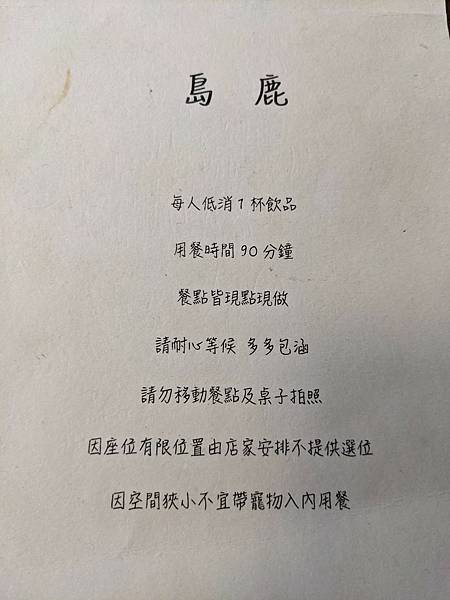 島 鹿
每人低消1杯飲品
用餐時間90分鐘
餐點皆現點現做
請耐心等候 多多包涵
請勿移動餐點及桌子拍照
因座位有限位置由店家安排不提供選位
因空間狹小不宜帶寵物入內用餐